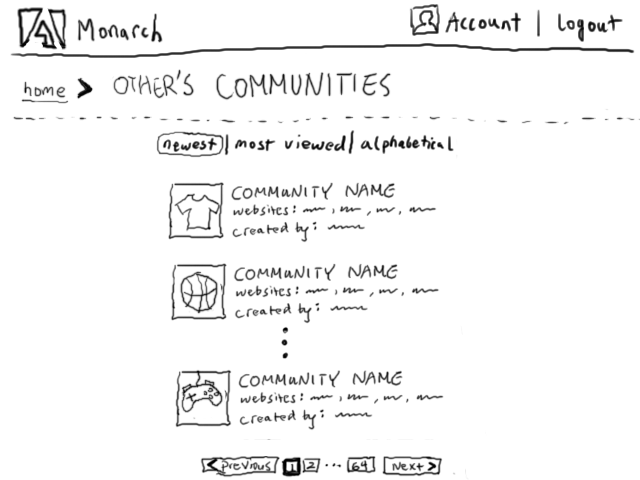 Monarch Account | Logout
home > OTHER'S COMMUNITIES
newest | most viewed | alphabetical
COMMUNITY NAME
websites: , , ,
created by:
COMMUNITY NAME
websites: , , ,
created by:
COMMUNITY NAME
websites: , , ,
created by:
< Previous 1 2 ... 64 Next >